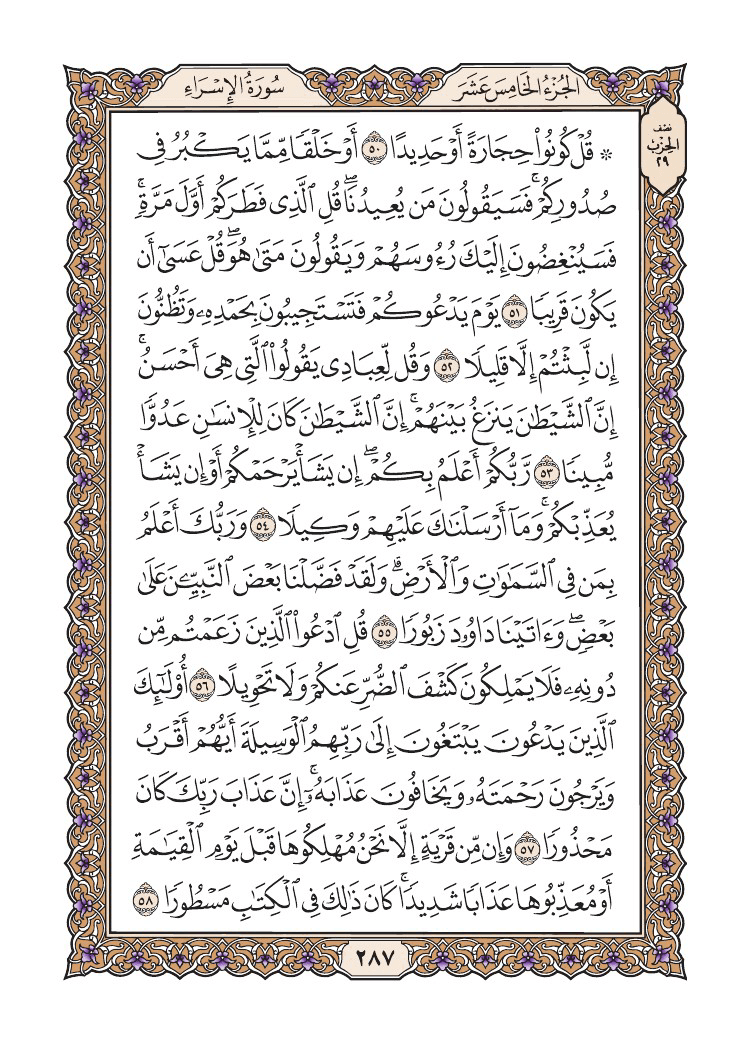 الجُزْءُ الخَامِسَ عَشَرَ
سُورَةُ الإِسْرَاءِ
نصف
الحزب
٢٩
۞ قُلۡ كُونُواْ حِجَارَةً أَوۡ حَدِيدًا ٥٠ أَوۡ خَلۡقٗا مِّمَّا يَكۡبُرُ فِي
صُدُورِكُمۡۚ فَسَيَقُولُونَ مَن يُعِيدُنَاۖ قُلِ ٱلَّذِي فَطَرَكُمۡ أَوَّلَ مَرَّةٖۚ
فَسَيُنۡغِضُونَ إِلَيۡكَ رُءُوسَهُمۡ وَيَقُولُونَ مَتَىٰ هُوَۖ قُلۡ عَسَىٰٓ أَن
يَكُونَ قَرِيبٗا ٥١ يَوۡمَ يَدۡعُوكُمۡ فَتَسۡتَجِيبُونَ بِحَمۡدِهِۦ وَتَظُنُّونَ
إِن لَّبِثۡتُمۡ إِلَّا قَلِيلٗا ٥٢ وَقُل لِّعِبَادِي يَقُولُواْ ٱلَّتِي هِيَ أَحۡسَنُۚ
إِنَّ ٱلشَّيۡطَٰنَ يَنزَغُ بَيۡنَهُمۡۚ إِنَّ ٱلشَّيۡطَٰنَ كَانَ لِلۡإِنسَٰنِ عَدُوّٗا
مُّبِينٗا ٥٣ رَّبُّكُمۡ أَعۡلَمُ بِكُمۡۖ إِن يَشَأۡ يَرۡحَمۡكُمۡ أَوۡ إِن يَشَأۡ
يُعَذِّبۡكُمۡۚ وَمَآ أَرۡسَلۡنَٰكَ عَلَيۡهِمۡ وَكِيلٗا ٥٤ وَرَبُّكَ أَعۡلَمُ
بِمَن فِي ٱلسَّمَٰوَٰتِ وَٱلۡأَرۡضِۗ وَلَقَدۡ فَضَّلۡنَا بَعۡضَ ٱلنَّبِيِّـۧنَ عَلَىٰ
بَعۡضٖۖ وَءَاتَيۡنَا دَاوُۥدَ زَبُورٗا ٥٥ قُلِ ٱدۡعُواْ ٱلَّذِينَ زَعَمۡتُم مِّن
دُونِهِۦ فَلَا يَمۡلِكُونَ كَشۡفَ ٱلضُّرِّ عَنكُمۡ وَلَا تَحۡوِيلًا ٥٦ أُوْلَٰٓئِكَ
ٱلَّذِينَ يَدۡعُونَ يَبۡتَغُونَ إِلَىٰ رَبِّهِمُ ٱلۡوَسِيلَةَ أَيُّهُمۡ أَقۡرَبُ
وَيَرۡجُونَ رَحۡمَتَهُۥ وَيَخَافُونَ عَذَابَهُۥٓۚ إِنَّ عَذَابَ رَبِّكَ كَانَ
مَحۡذُورٗا ٥٧ وَإِن مِّن قَرۡيَةٍ إِلَّا نَحۡنُ مُهۡلِكُوهَا قَبۡلَ يَوۡمِ ٱلۡقِيَٰمَةِ
أَوۡ مُعَذِّبُوهَا عَذَابٗا شَدِيدٗاۚ كَانَ ذَٰلِكَ فِي ٱلۡكِتَٰبِ مَسۡطُورٗا ٥٨
٢٨٧